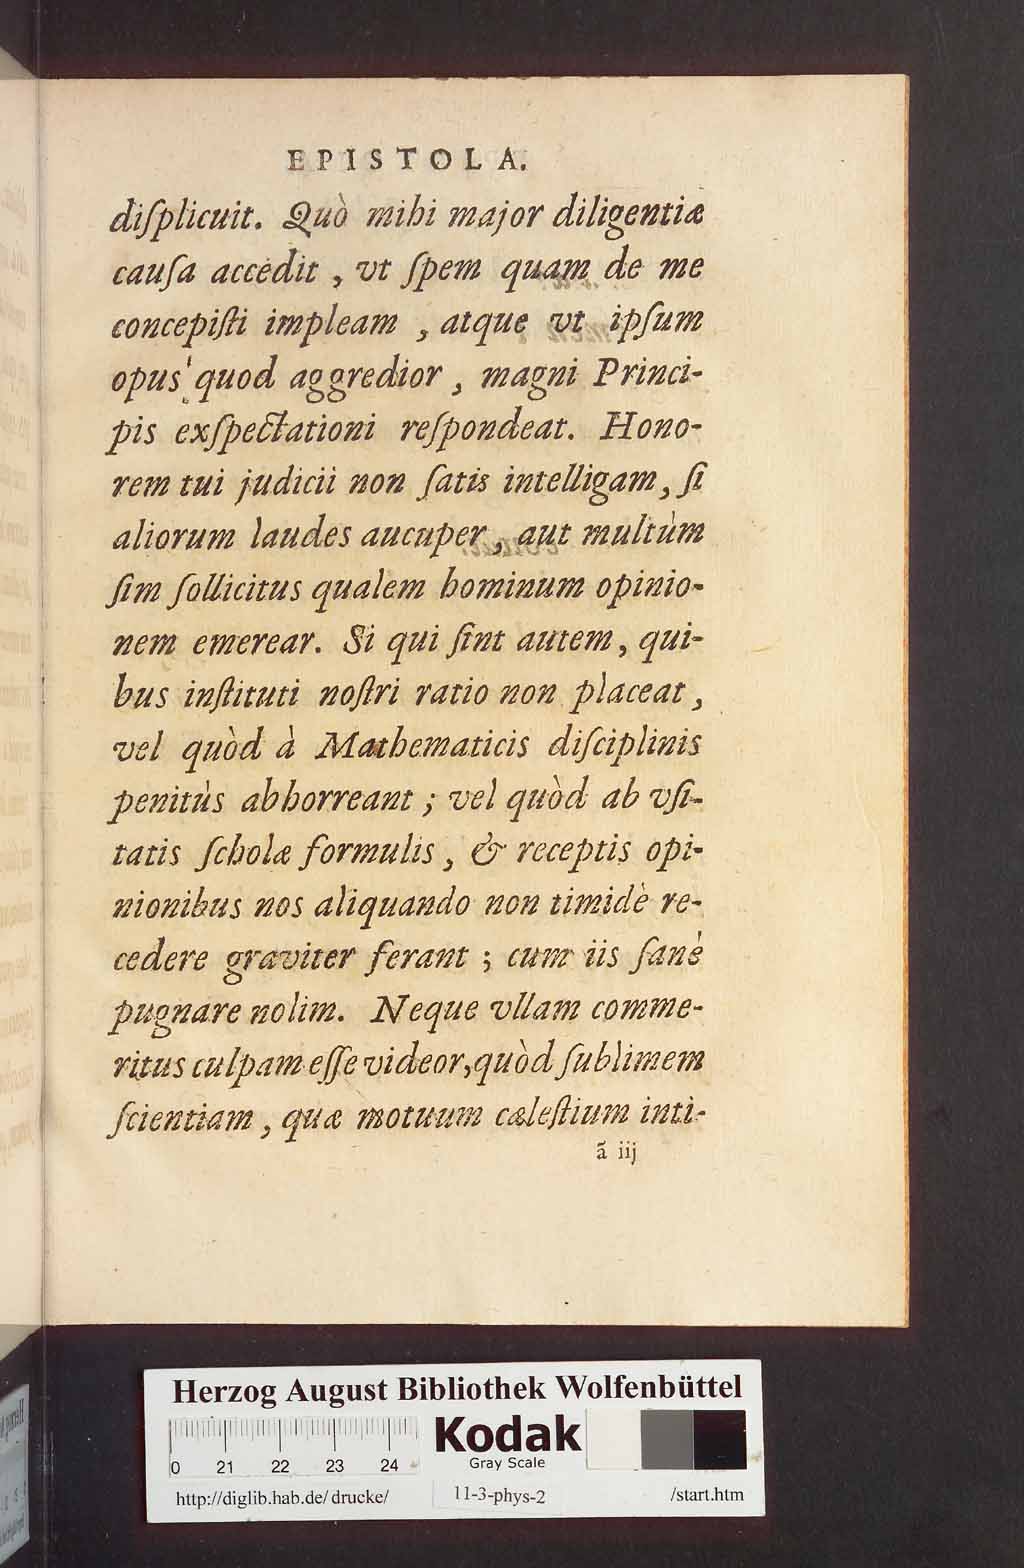 EPISTOLA.
diſplicuit. Quò mihi major diligentiæ
cauſa accedit , vt ſpem quam de me
concepiſti impleam , atque vt ipſum
opus quod aggredior , magni Princi-
pis exſpectationi reſpondeat. Hono-
rem tui judicii non ſatis intelligam, ſi
aliorum laudes aucuper, aut multùm
ſim ſollicitus qualem hominum opinio-
nem emerear. Si qui ſint autem, qui-
bus inſtituti noſtri ratio non placeat,
vel quòd à Mathematicis diſciplinis
penitùs abhorreant ; vel quòd ab vſi-
tatis ſcholæ formulis, & receptis opi-
nionibus nos aliquando non timidè re-
cedere graviter ferant ; cum iis ſanè
pugnare nolim. Neque vllam comme-
ritus culpam eſſe videor, quòd ſublimem
ſcientiam, quæ motuum cæleſtium inti-
ã iij
Herzog August Bibliothek Wolfenbüttel
0 21 22 23 24
Kodak
Gray Scale
http://diglib.hab.de/drucke/ 11-3-phys-2 /start.htm